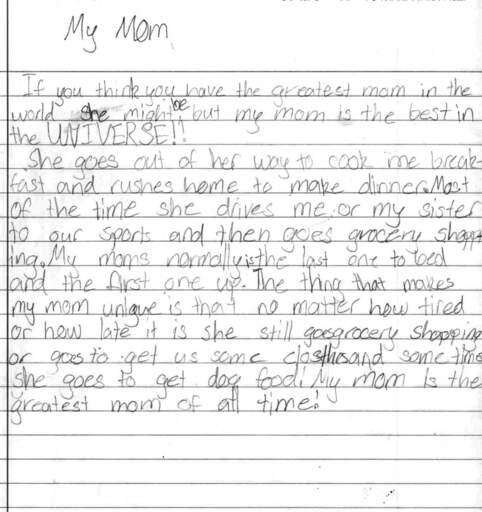 My Mom
If you think you have the greatest mom in the
world she might be but my mom is the best in
the UNIVERSE!!
She goes out of her way to cook me break-
fast and rushes home to make dinner. Most
of the time she drives me or my sister
to our sports and then goes grocery shopp-
ing. My moms normally is the last one to bed
and the first one up. The thing that makes
my mom unique is that no matter how tired
or how late it is she still goes grocery shopping
or goes to get us some and some time
she goes to get dog food! My mom is the
greatest mom of all time!